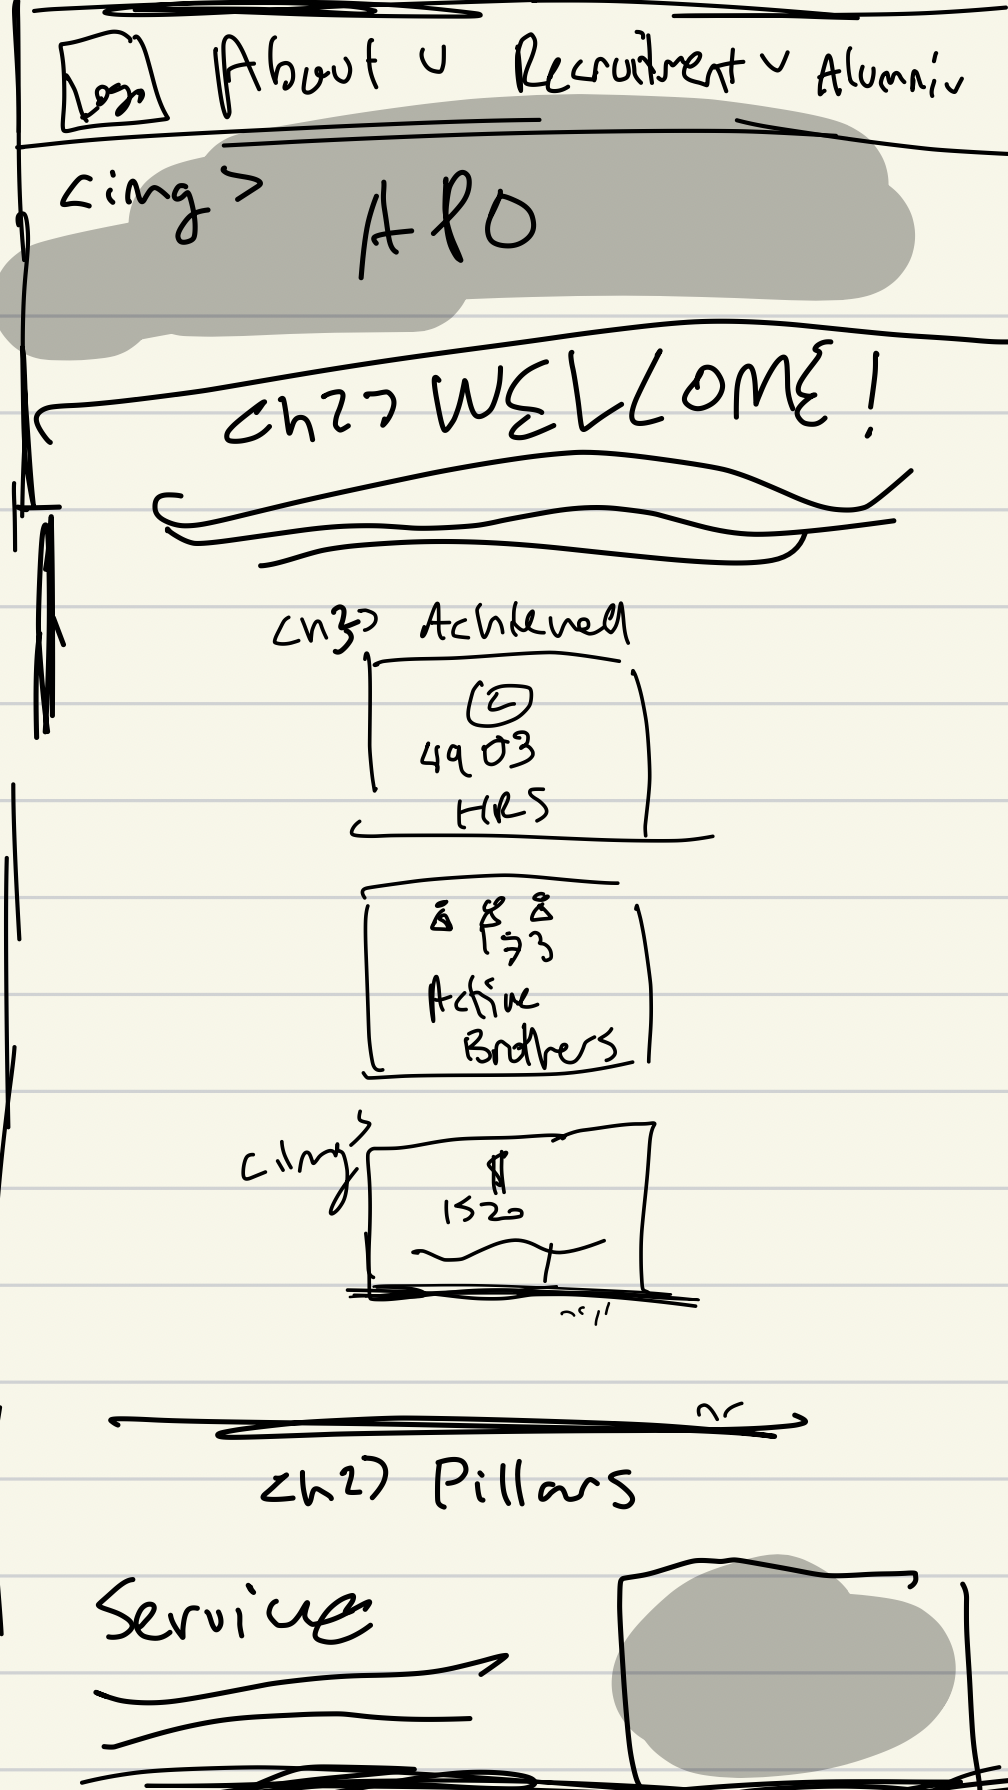 Logo About v Recruitment v Alumni v
<img>
APO
<h2> WELCOME!
<h3> Achieved
4903
HRS
73
Active
Brothers
<img>
$
1520
<h2> Pillars
Service